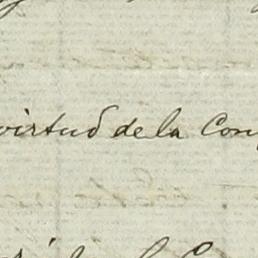 virtud de la Con